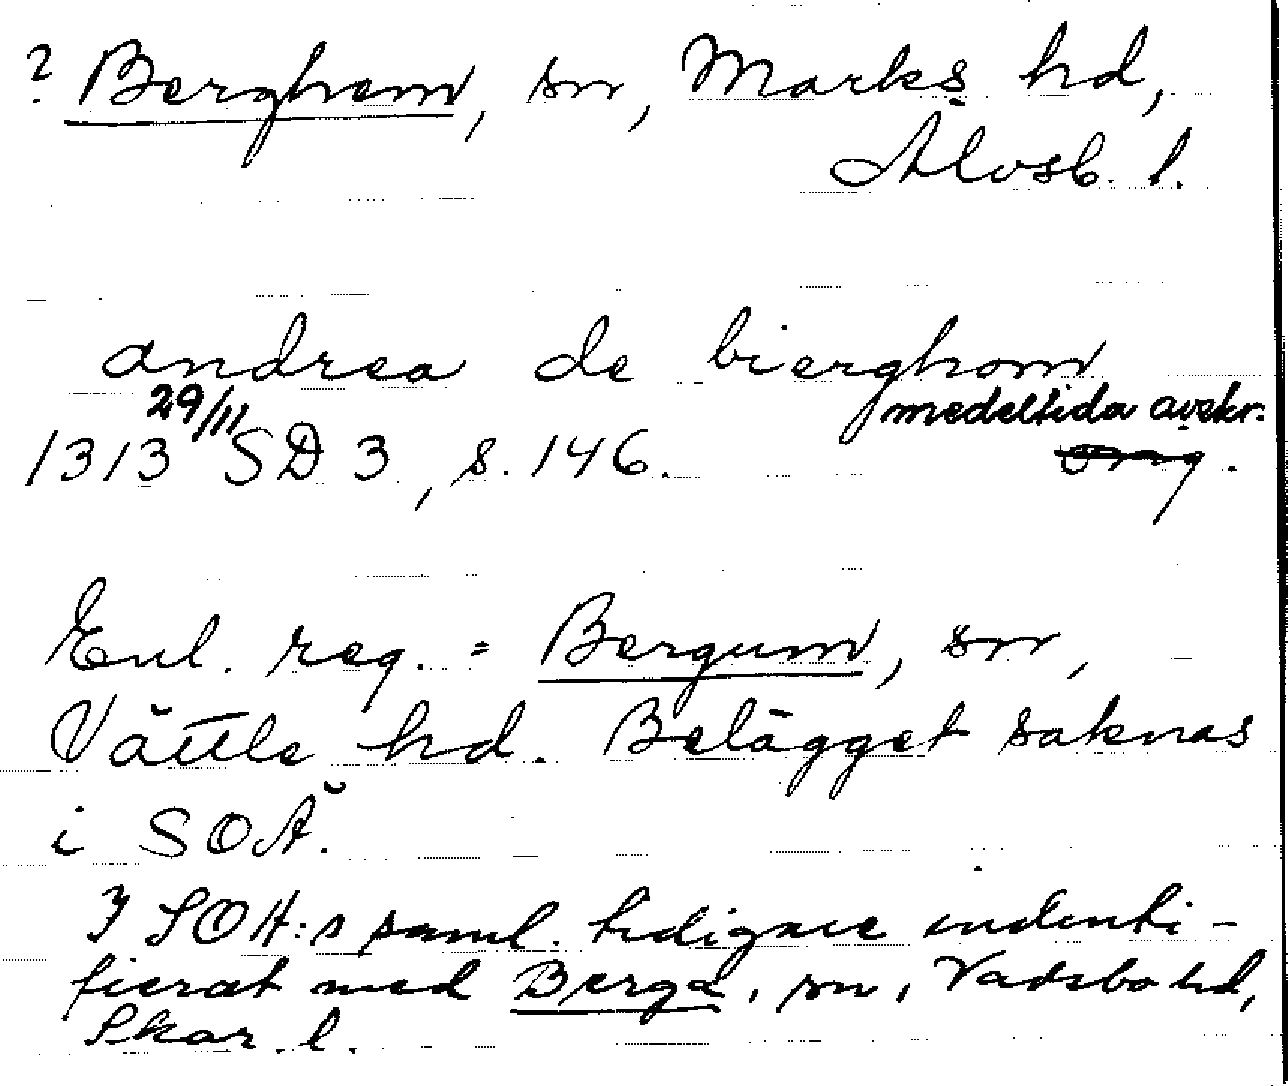 ? Berghem, sn, Marks hd,
Älvsb. l.
andrea de bierghom
medeltida avskr.
1313 29/11 SD 3, s. 146. orig.
Enl. reg. = Bergum, sn,
Vättle hd. Belägget saknas
i SOÄ.
I SOA:s saml. tidigare indenti-
fierat med Berga, sn, Vadsbo hd,
Skar. l.